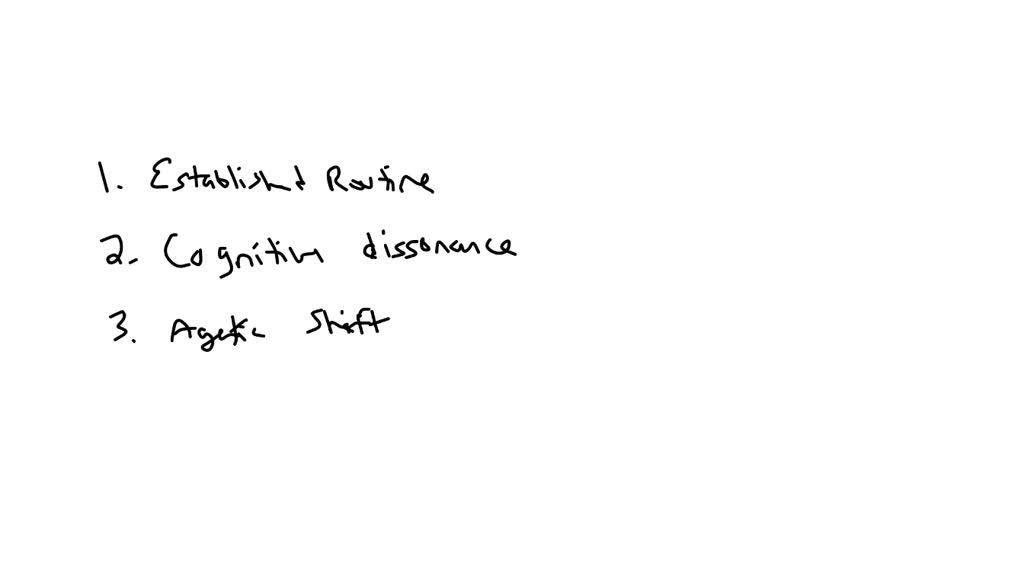 1. Established Routine
2. Cognitive dissonance
3. Agentic Shift